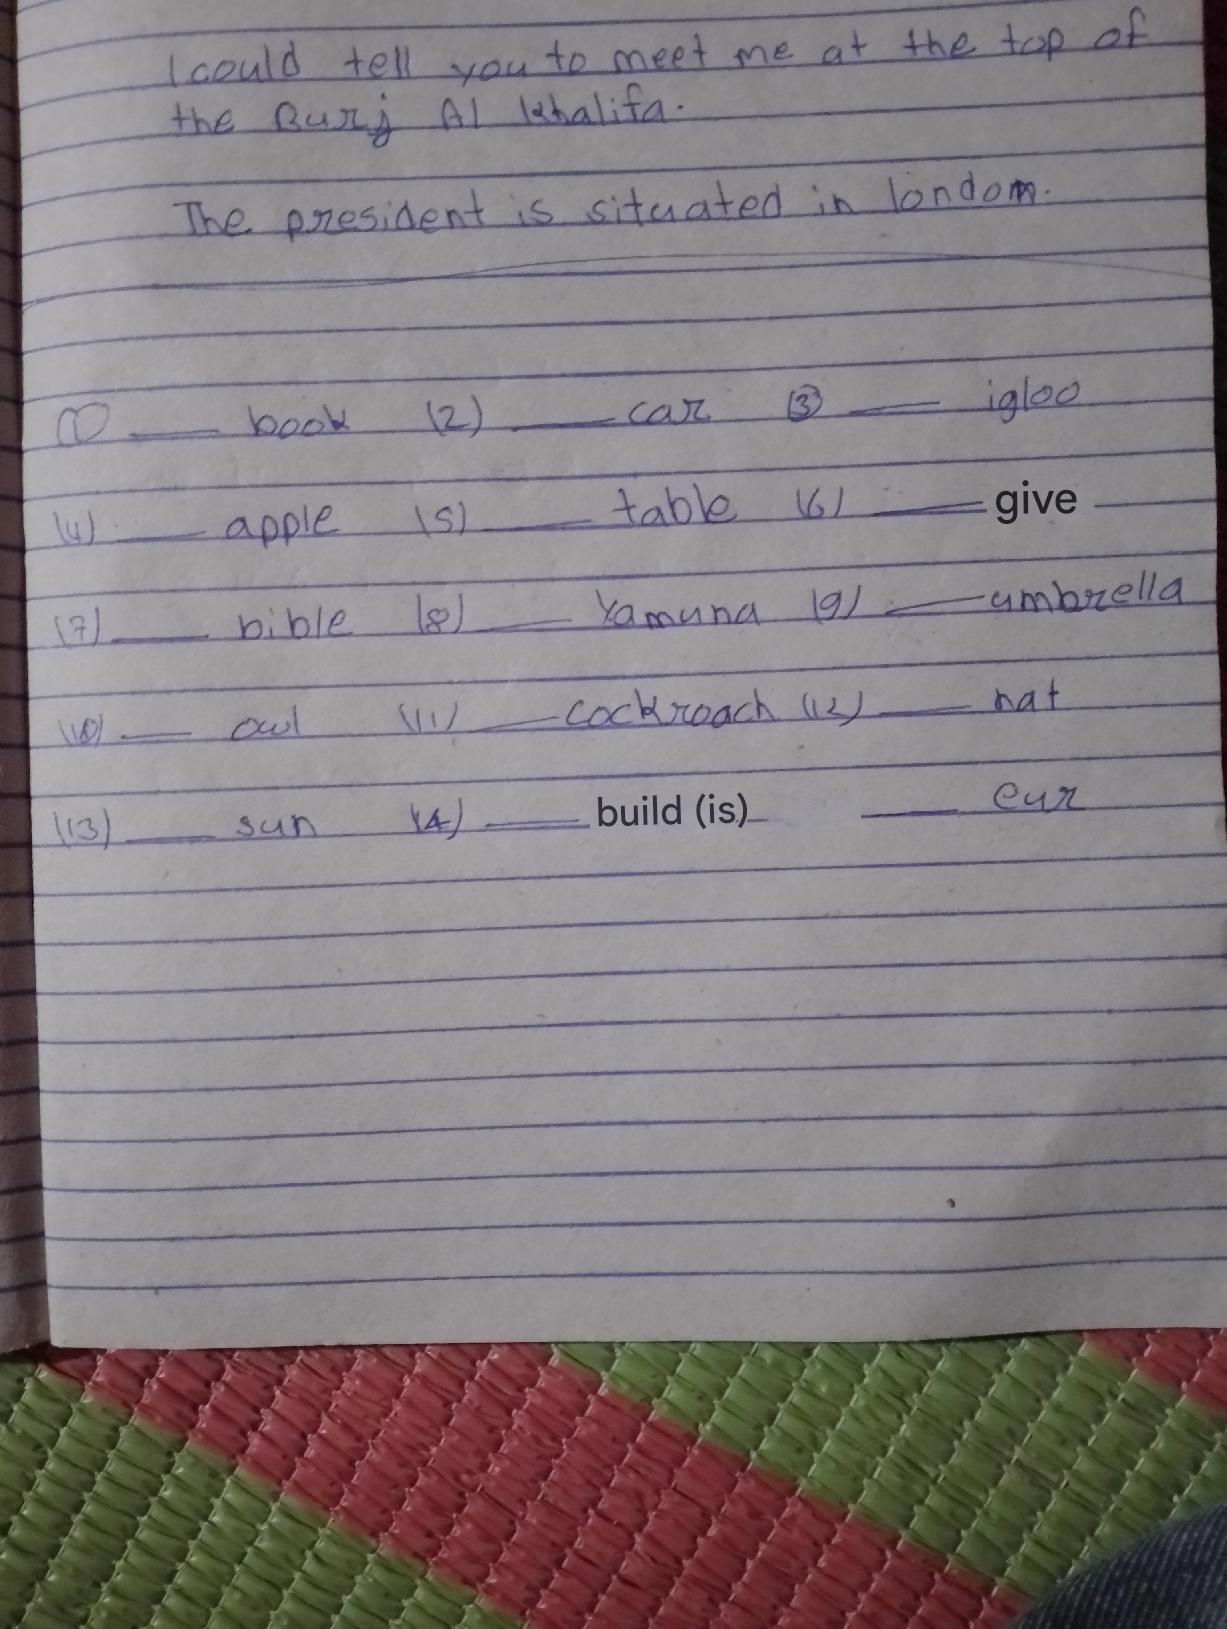 I could tell you to meet me at the top of
the Burj Al khalifa.
The president is situated in london.
(1) ___ book (2) ___ car (3) ___ igloo
(4) ___ apple (5) ___ table (6) ___ give
(7) ___ bible (8) ___ Yamuna (9) ___ umbrella
(10) ___ owl (11) ___ cockroach (12) ___ hat
(13) ___ sun (14) ___ build (is) ___ eur